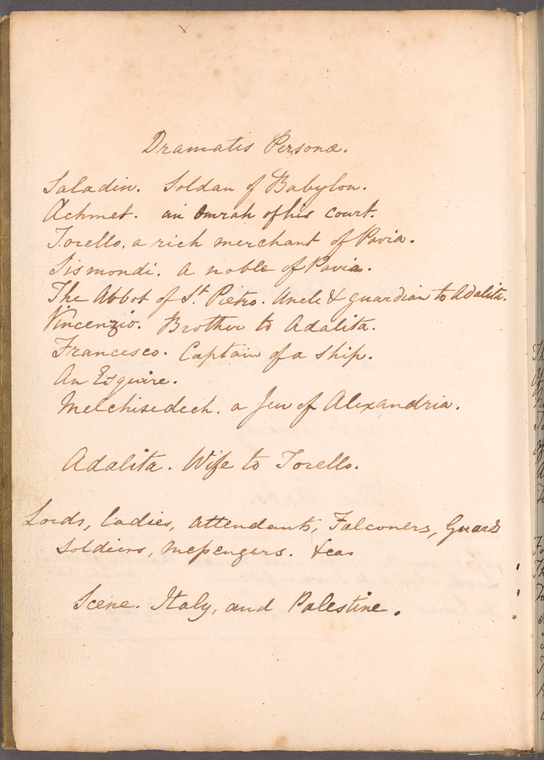 Dramatis Personæ.
Saladin. Soldan of Babylon.
Achmet. an Omrah of his Court.
Torello. a rich merchant of Pavia.
Sismondi. A noble of Pavia.
The Abbot of St Pietro. Uncle & guardian to Adalita.
Vincenzio. Brother to Adalita.
Francesco. Captain of a Ship.
An Esquire.
Melchisedech. a Jew of Alexandria.
Adalita. Wife to Torello.
Lords, Ladies, Attendants, Falconers, Guards
Soldiers, Messengers. &ca.
Scene. Italy, and Palestine.